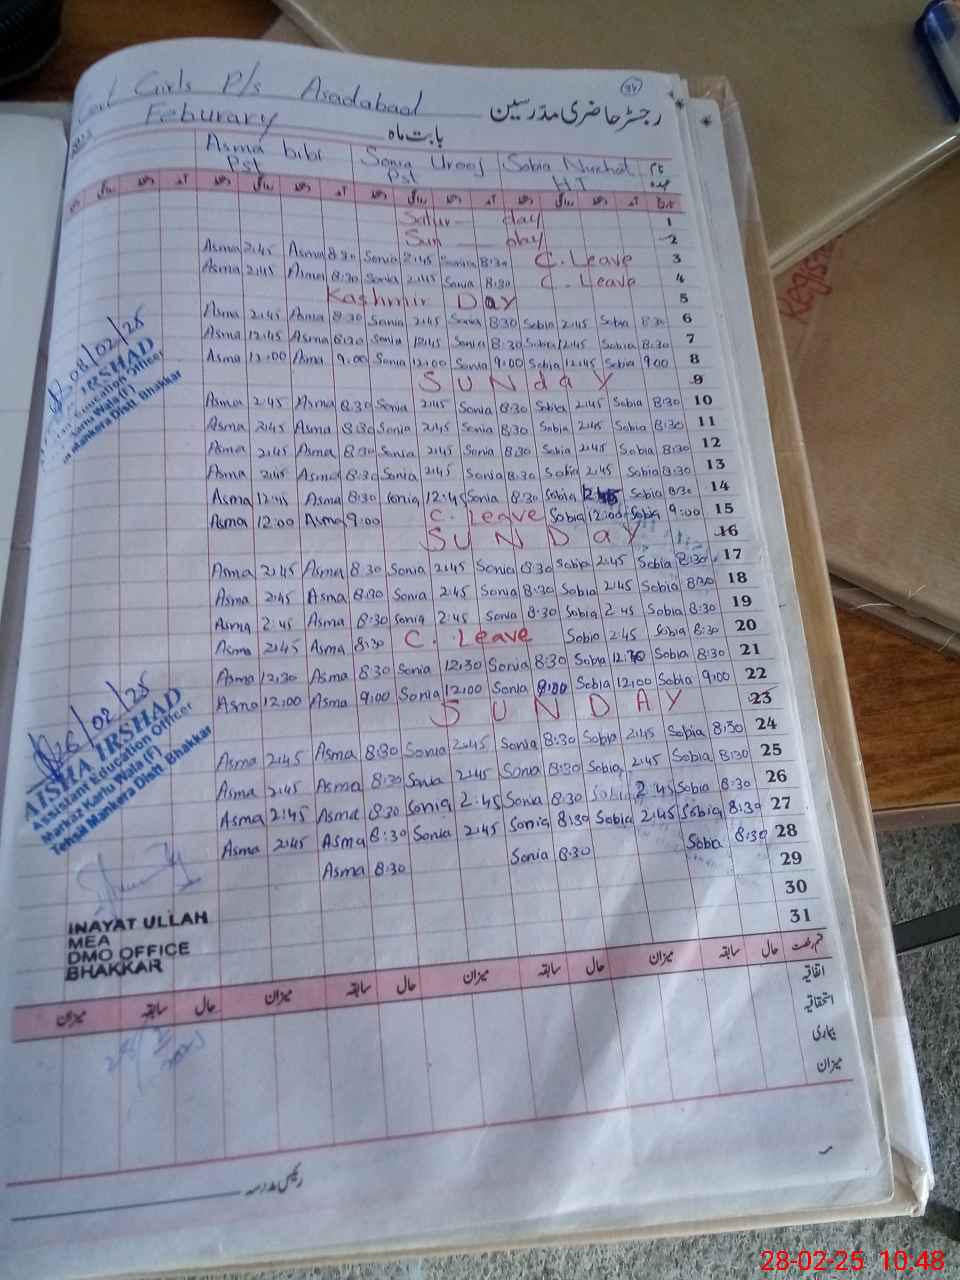 Govt Girls P/s Asadabad
رجسٹر حاضری مدرسین
Feburary
بابت ماہ
Asma bibi Sonia Urooj Sobia Nuzhat نام
Pst Pst HT عہدہ
روانگی آمد روانگی آمد روانگی آمد تاریخ
Satur day 1
Sun day 2
Asma 2:45 Asma 8:30 Sonia 2:45 Sonia 8:30 C. Leave 3
Asma 2:45 Asma 8:30 Sonia 2:45 Sonia 8:30 C. Leave 4
Kashmir Day 5
Asma 2:45 Asma 8:30 Sonia 2:45 Sonia 8:30 Sobia 2:45 Sobia 8:30 6
Asma 12:45 Asma 8:30 Sonia 12:45 Sonia 8:30 Sobia 12:45 Sobia 8:30 7
Asma 12:00 Asma 9:00 Sonia 12:00 Sonia 9:00 Sobia 12:45 Sobia 9:00 8
SUNday 9
Asma 2:45 Asma 8:30 Sonia 2:45 Sonia 8:30 Sobia 2:45 Sobia 8:30 10
Asma 2:45 Asma 8:30 Sonia 2:45 Sonia 8:30 Sobia 2:45 Sobia 8:30 11
Asma 2:45 Asma 8:30 Sonia 2:45 Sonia 8:30 Sobia 2:45 Sobia 8:30 12
Asma 2:45 Asma 8:30 Sonia 2:45 Sonia 8:30 Sobia 2:45 Sobia 8:30 13
Asma 12:45 Asma 8:30 Sonia 12:45 Sonia 8:30 Sobia Sobia 8:30 14
Asma 12:00 Asma 9:00 C. Leave Sobia 12:00 Sobia 9:00 15
SUNDAY 16
Asma 2:45 Asma 8:30 Sonia 2:45 Sonia 8:30 Sobia 2:45 Sobia 8:30 17
Asma 2:45 Asma 8:30 Sonia 2:45 Sonia 8:30 Sobia 2:45 Sobia 8:30 18
Asma 2:45 Asma 8:30 Sonia 2:45 Sonia 8:30 Sobia 2:45 Sobia 8:30 19
Asma 2:45 Asma 8:30 C. Leave Sobia 2:45 Sobia 8:30 20
Asma 12:30 Asma 8:30 Sonia 12:30 Sonia 8:30 Sobia Sobia 8:30 21
Asma 12:00 Asma 9:00 Sonia 12:00 Sonia 9:00 Sobia 12:00 Sobia 9:00 22
SUNDAY 23
Asma 2:45 Asma 8:30 Sonia 2:45 Sonia 8:30 Sobia 2:45 Sobia 8:30 24
Asma 2:45 Asma 8:30 Sonia 2:45 Sonia 8:30 Sobia 2:45 Sobia 8:30 25
Asma 2:45 Asma 8:30 Sonia 2:45 Sonia 8:30 Sobia 2:45 Sobia 8:30 26
Asma 2:45 Asma 8:30 Sonia 2:45 Sonia 8:30 Sobia 2:45 Sobia 8:30 27
Asma 8:30 Sonia 8:30 Sobia 8:30 28
29
30
31
08/02/25
IRSHAD
Education Officer
Karlu Wala (F)
Mankera Distt Bhakkar
26/02/25
AISHA IRSHAD
Assistant Education Officer
Markaz Karlu Wala (F)
Tehsil Mankera Distt Bhakkar
INAYAT ULLAH
MEA
DMO OFFICE
BHAKKAR
میزان سابقہ حال میزان سابقہ حال میزان سابقہ حال میزان سابقہ حال قسم رخصت
اتفاقیہ
استحقاقیہ
بیماری
میزان
رئیس مدرسہ
Register
28-02-25 10:48